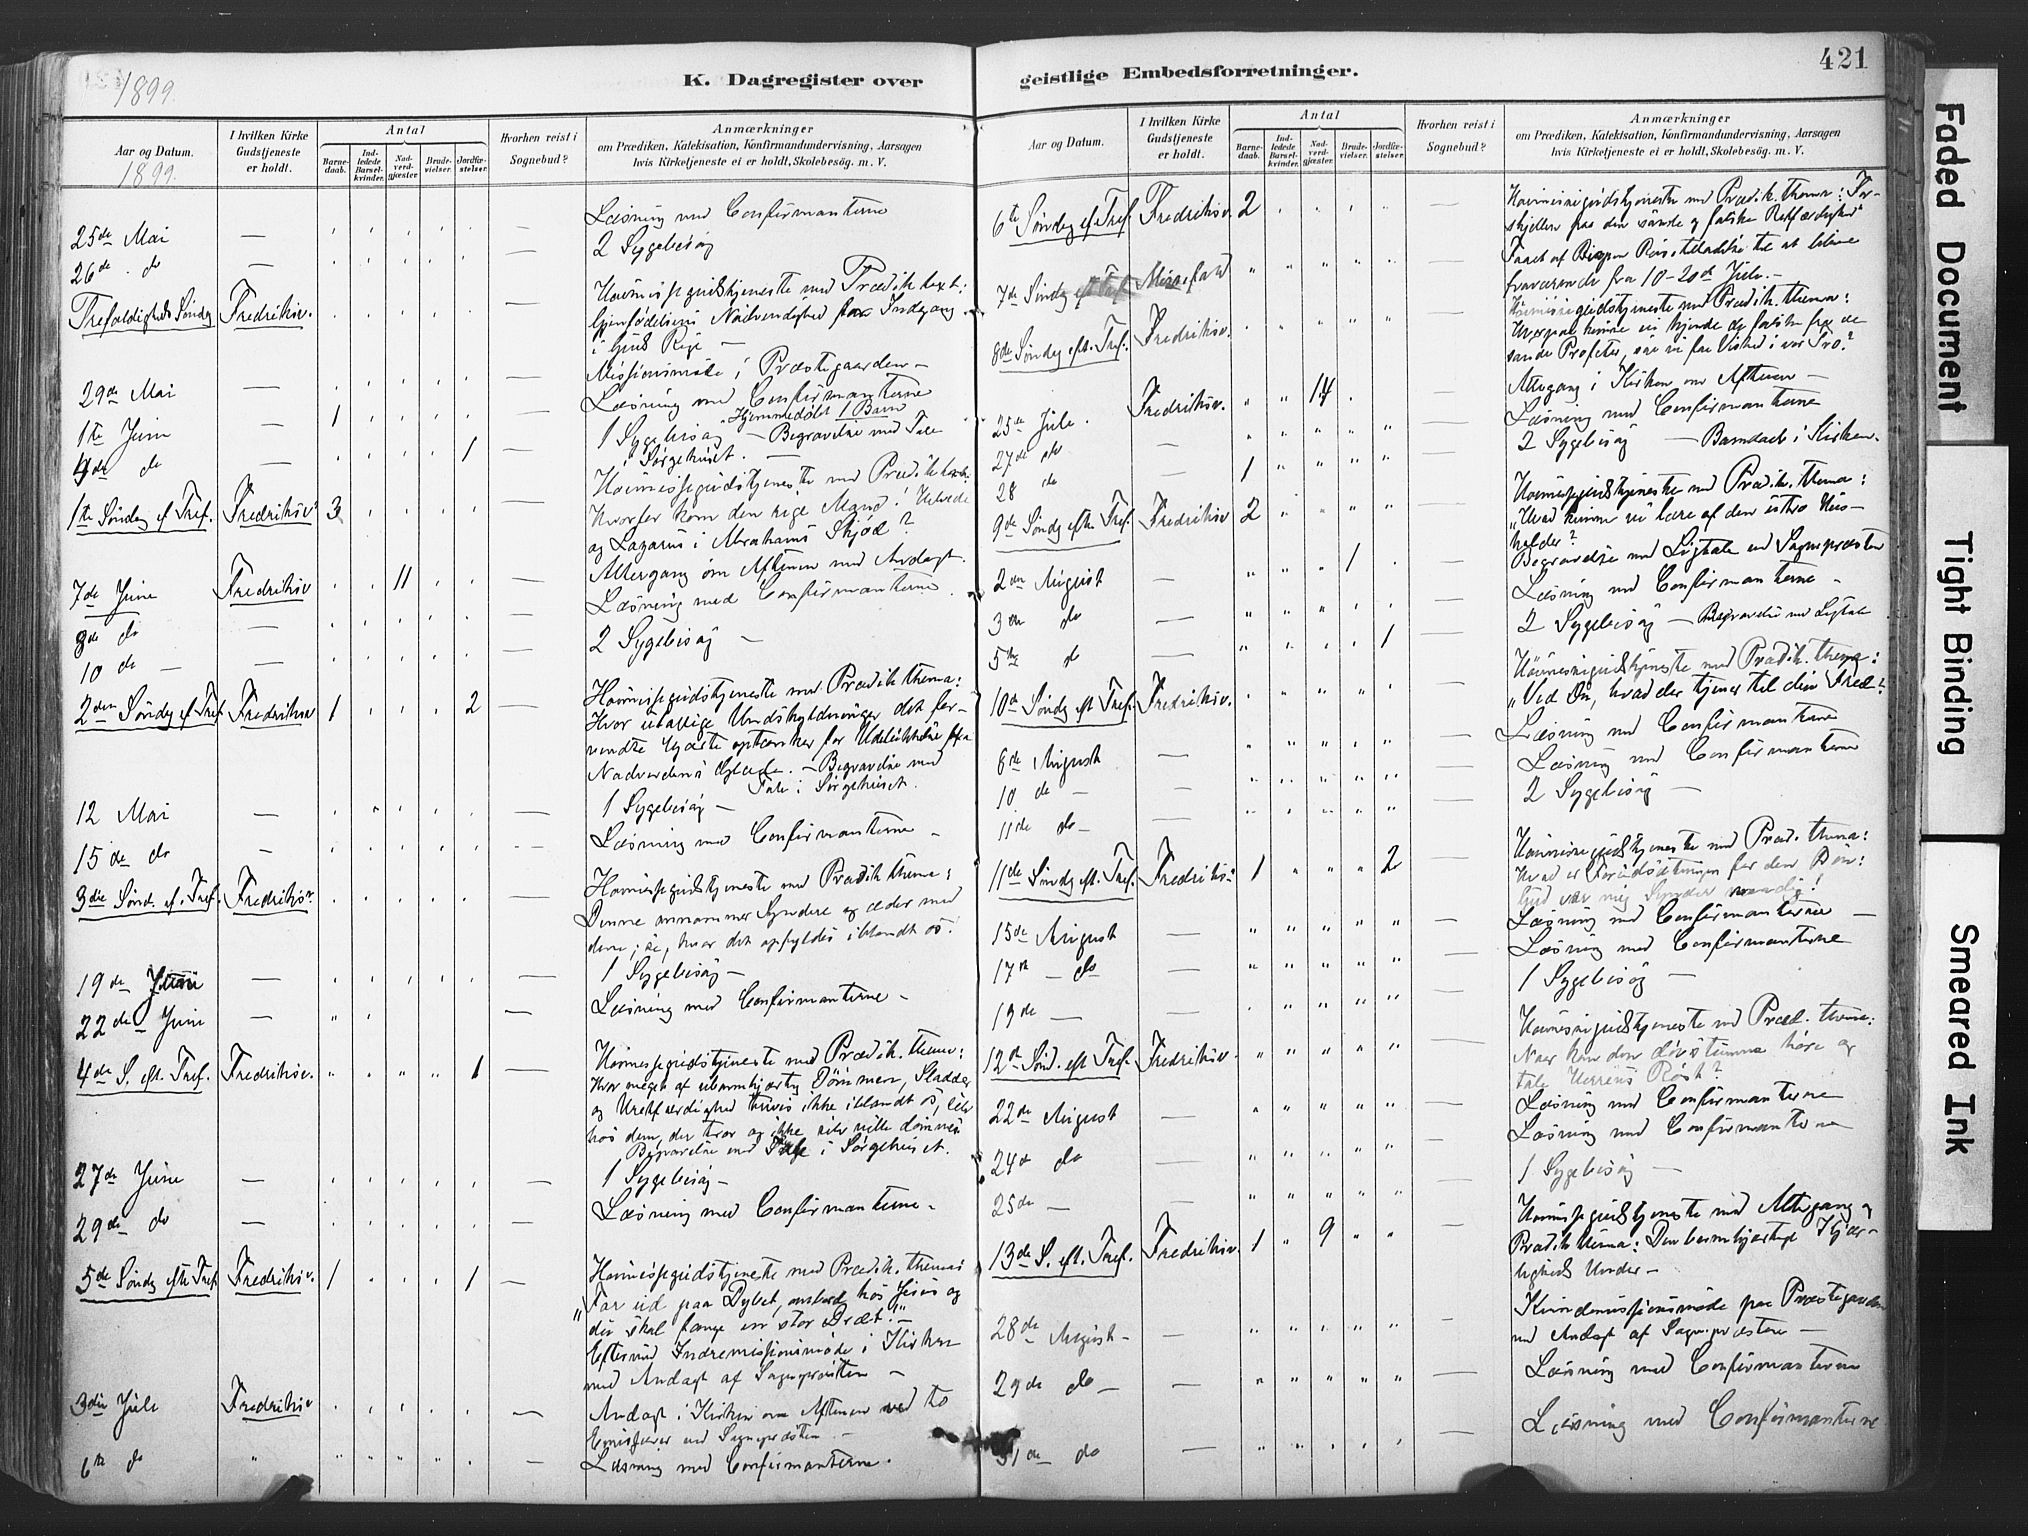 1899.
K. Dagregister over geistlige Embedsforretninger.
421
Aar og Datum.
1899.
I hvilken Kirke Gudstjeneste er holdt.
Antal
Barne-daab.
Ind-ledede Barsel-kvinder.
Nad-verd-gjæster.
Brude-vielser.
Jordfæ-stelser.
Hvorhen reist i Sognebud?
Anmærkninger
om Prædiken, Katekisation, Konfirmandundervisning, Aarsagen
hvis Kirketjeneste ei er holdt, Skolebesög. m. V.
25de Mai — Læsning med Confirmanterne
26de do — 2 Sygebesøg
Trefoldigheds Søndag Fredriksv. Høimessegudstjeneste med Prædik. text:
Gjenfødelsens Nødvendighed for Indgang
i Guds Rige —
29de Mai — Missionsmøte i Præstegaarden —
1te Juni — 1 Læsning med Confirmanterne
Hjemmedøbt 1 Barn
4de do — 1 1 Sygebesøg — Begravelse med Tale
i Sørgehuset. —
1te Søndag ef Tref. Fredriksv. 3 Høimessegudstjeneste med Prædik.
Hvorfor kom den rige Mand i Helvede
og Lazarus i Abrahams Skjød?
7de Juni Fredriksv 11 Altergang om Aftenen med Andagt.
8de do — Læsning med Confirmanterne.
10 do — 2 Sygebesøg —
2den Søndag ef Tref. Fredriksv 1 2 Høimessegudstjeneste med Prædik. thema:
Hvor utallige Undskyldninger det for-
vendte Hjerte optænker for Udelukkelse fra
Nadverdens Glæde. — Begravelse med
Tale i Sørgehuset.
12 Mai — 1 Sygebesøg —
15de do — Læsning med Confirmanterne —
3die Sønd. ef. Tref. Fredriksv. Høimessegudstjeneste med Prædik. thema:
Denne annammer Syndere og æder med
dem; se, hvor det opfyldes iblandt os.
19de Juni — 1 Sygebesøg —
22de Juni — Læsning med Confirmanterne —
4de S. eft. Tref. Fredriksv. 1 Høimessegudstjeneste med Prædik. thema:
Hvor meget af ubarmhjertig Dømmen, Sladder
og Uretfærdighed findes ikke iblandt os,
hos dem, der tror og ikke selv ville dømmes
Begravelse med Tale i Sørgehuset.
27de Juni — 1 Sygebesøg —
29de do — Læsning med Confirmanterne.
5de Søndag efter Tref Fredriksv. 1 1 Høimessegudstjeneste med Prædik. thema:
"Far ud paa Dybet, hos Jesus og
du skal fange en stor Dræt!" —
Efterm. Indremissionsmøde i Kirken
med Andagt af Sognepræsten —
3die Juli Fredriksv Andagt i Kirken om Aftenen ved to
Emissærer ved Sognepræsten —
6te do " Læsning med Confirmanterne.
Aar og Datum.
I hvilken Kirke Gudstjeneste er holdt.
Antal
Barne-daab.
Ind-ledede Barsel-kvinder.
Nad-verd-gjæster.
Brude-vielser.
Jordfæ-stelser.
Hvorhen reist i Sognebud?
Anmærkninger
om Prædiken, Katekisation, Konfirmandundervisning, Aarsagen
hvis Kirketjeneste ei er holdt, Skolebesög. m. V.
6te Søndag ef Tref. Fredriksv. 2 Høimessegudstjeneste med Prædik. thema: For-
skjellen paa den sande og falske Retfærdighed
7de Søndag eft Tref Messefald Faaet af Tilladelse til at blive
fraværende fra 10-20de Juli. —
8de Søndag eft. Tref. Fredriksv. Høimessegudstjeneste med Prædik. thema:
Hvorpaa kunne vi kjende de falske fra de
sande Profeter, saa vi faa Vished i vor Tro?
25de Juli. Fredriksv. 14 Altergang i Kirken om Aftenen —
27de do — Læsning med Confirmanterne
28 do — 1 2 Sygebesøg — Barnedaab i Kirken.
9de Søndag efter Tref. Fredriksv 2 Høimessegudstjeneste med Prædik. thema:
"Hvad kunne vi lære af den utro Hus-
holder?
2den August — 1 Begravelse med Ligtale ved Sognepræsten
3die do — Læsning med Confirmanterne —
5te do — 1 2 Sygebesøg — Begravelse med Ligtale
10de Søndag eft Tref. Fredriksv. Høimessegudstjeneste med Prædik. thema:
"Ved Du, hvad der tjener til din Fred?
8de August — Læsning med Confirmanterne
10 do — Læsning med Confirmanterne
11te do — 2 Sygebesøg —
11te Søndag eft. Tref. Fredriksv. 1 2 Høimessegudstjeneste med Præd. thema:
Hvad er Forudsætningen for den Bøn:
Gud vær mig Synder naadig!
15de August — Læsning med Confirmanterne —
17de — do — Læsning med Confirmanterne
19de — — 1 Sygebesøg —
12te Sønd. eft Tref. Fredriksv. Høimessegudstjeneste med Præd. thema:
Naar kan den døvstumme høre og
tale Herrens Røst?
22de August — Læsning med Confirmanterne
24de do — Læsning med Confirmanterne
25de — — 1 Sygebesøg —
13de S. eft. Tref. Fredriksv. 1 9 Høimessegudstjeneste med Altergang og
Prædik. thema: Den barmhjertige Kjær-
ligheds Under —
28de August — — Kvindemissionsmøde paa Præstegaarden
med Andagt af Sognepræsten —
29de do — — Læsning med Confirmanterne
31te do — Læsning med Confirmanterne
Faded Document
Tight Binding
Smeared Ink